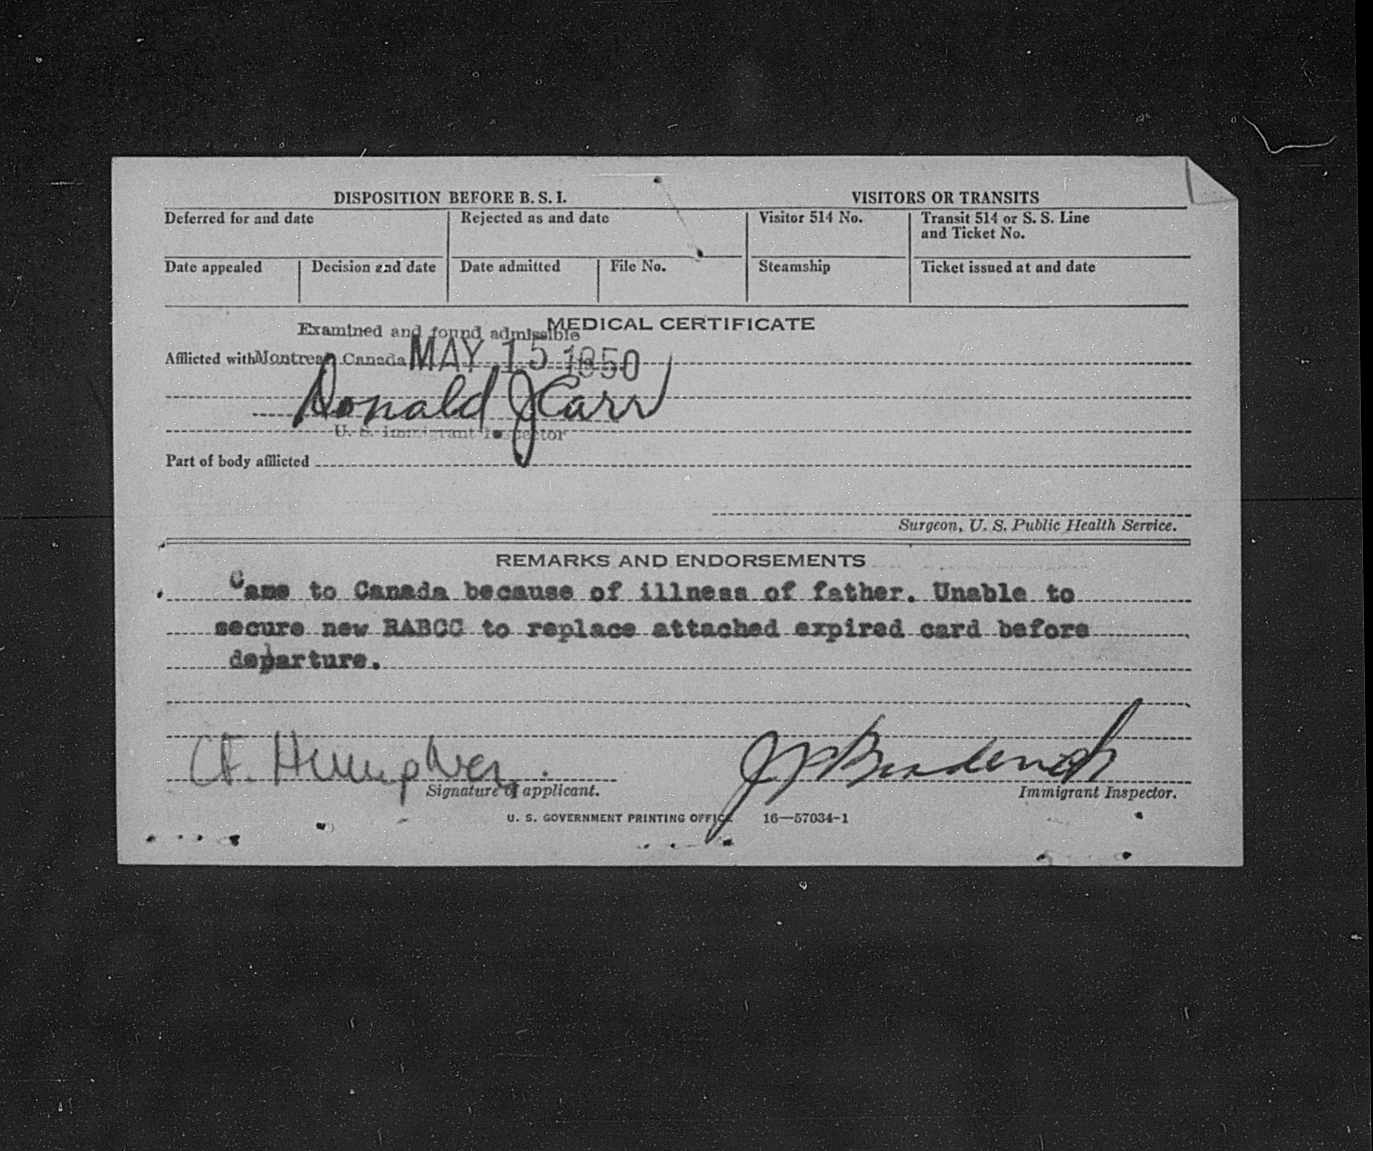 DISPOSITION BEFORE B. S. I.
VISITORS OR TRANSITS
Deferred for and date
Rejected as and date
Visitor 514 No.
Transit 514 or S. S. Line
and Ticket No.
Date appealed
Decision and date
Date admitted
File No.
Steamship
Ticket issued at and date
MEDICAL CERTIFICATE
Examined and found admissible
Afflicted with Montreal Canada MAY 15 1950
Donald J Carr
U. S. immigrant Inspector
Part of body afflicted
Surgeon, U. S. Public Health Service.
REMARKS AND ENDORSEMENTS
Came to Canada because of illness of father. Unable to
secure new RABCC to replace attached expired card before
departure.
Humphrey
Signature of applicant.
Immigrant Inspector.
U. S. GOVERNMENT PRINTING OFFICE 16—57034-1